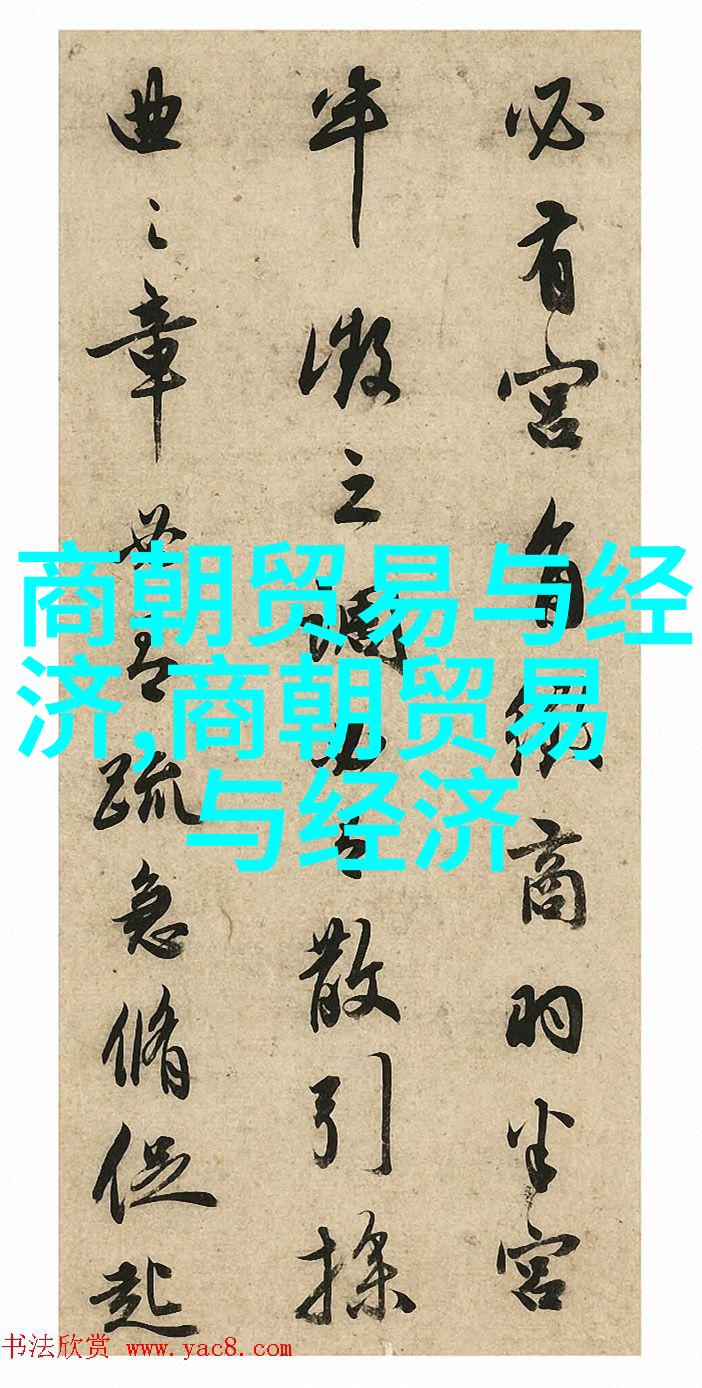 必有宮角徵商羽半宮
半徵之調散引操
曲之章疏急脩促起
商朝贸易与经
济,商朝贸易
与经济
书法欣赏 www.yac8.com